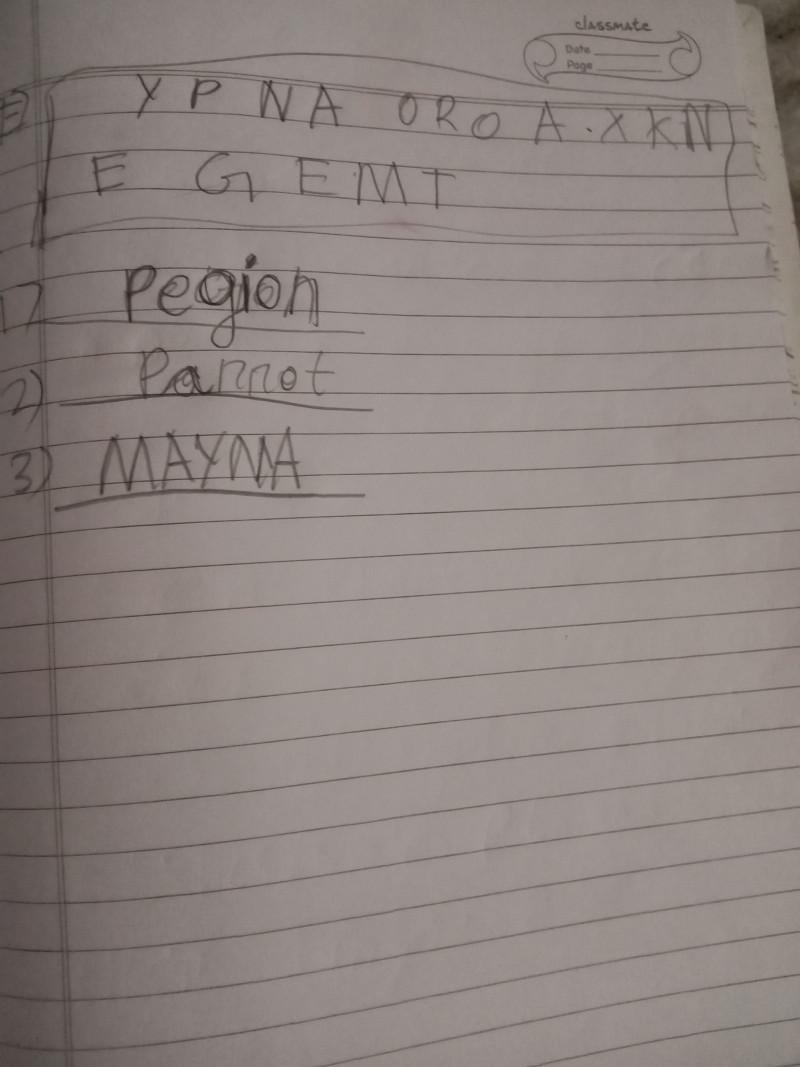 classmate
Date
Page
Y P N A O R O A . X K N
E G E M T
1) Pegion
2) Parrot
3) MAYNA